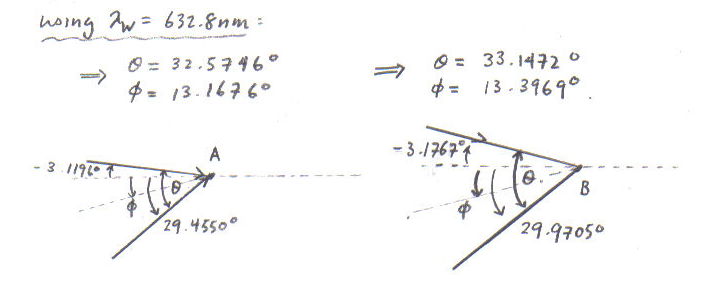 using λw = 632.8nm :
⇒ θ = 32.5746°
ϕ = 13.1676°
⇒ θ = 33.1472°
ϕ = 13.3969°.
-3.1196°
A
θ
ϕ
29.4550°
-3.1767°
θ.
B
ϕ
29.9705°